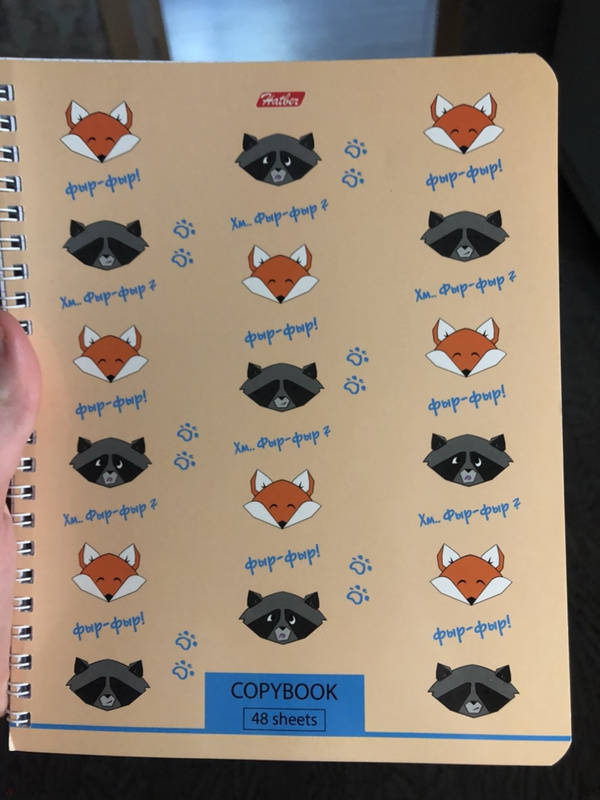 Hatber
фыр-фыр!
фыр-фыр!
Хм.. Фыр-фыр ?
Хм.. Фыр-фыр ?
Хм.. Фыр-фыр ?
фыр-фыр!
фыр-фыр!
фыр-фыр!
Хм.. Фыр-фыр ?
Хм.. Фыр-фыр ?
Хм.. Фыр-фыр ?
фыр-фыр!
фыр-фыр!
фыр-фыр!
COPYBOOK
48 sheets